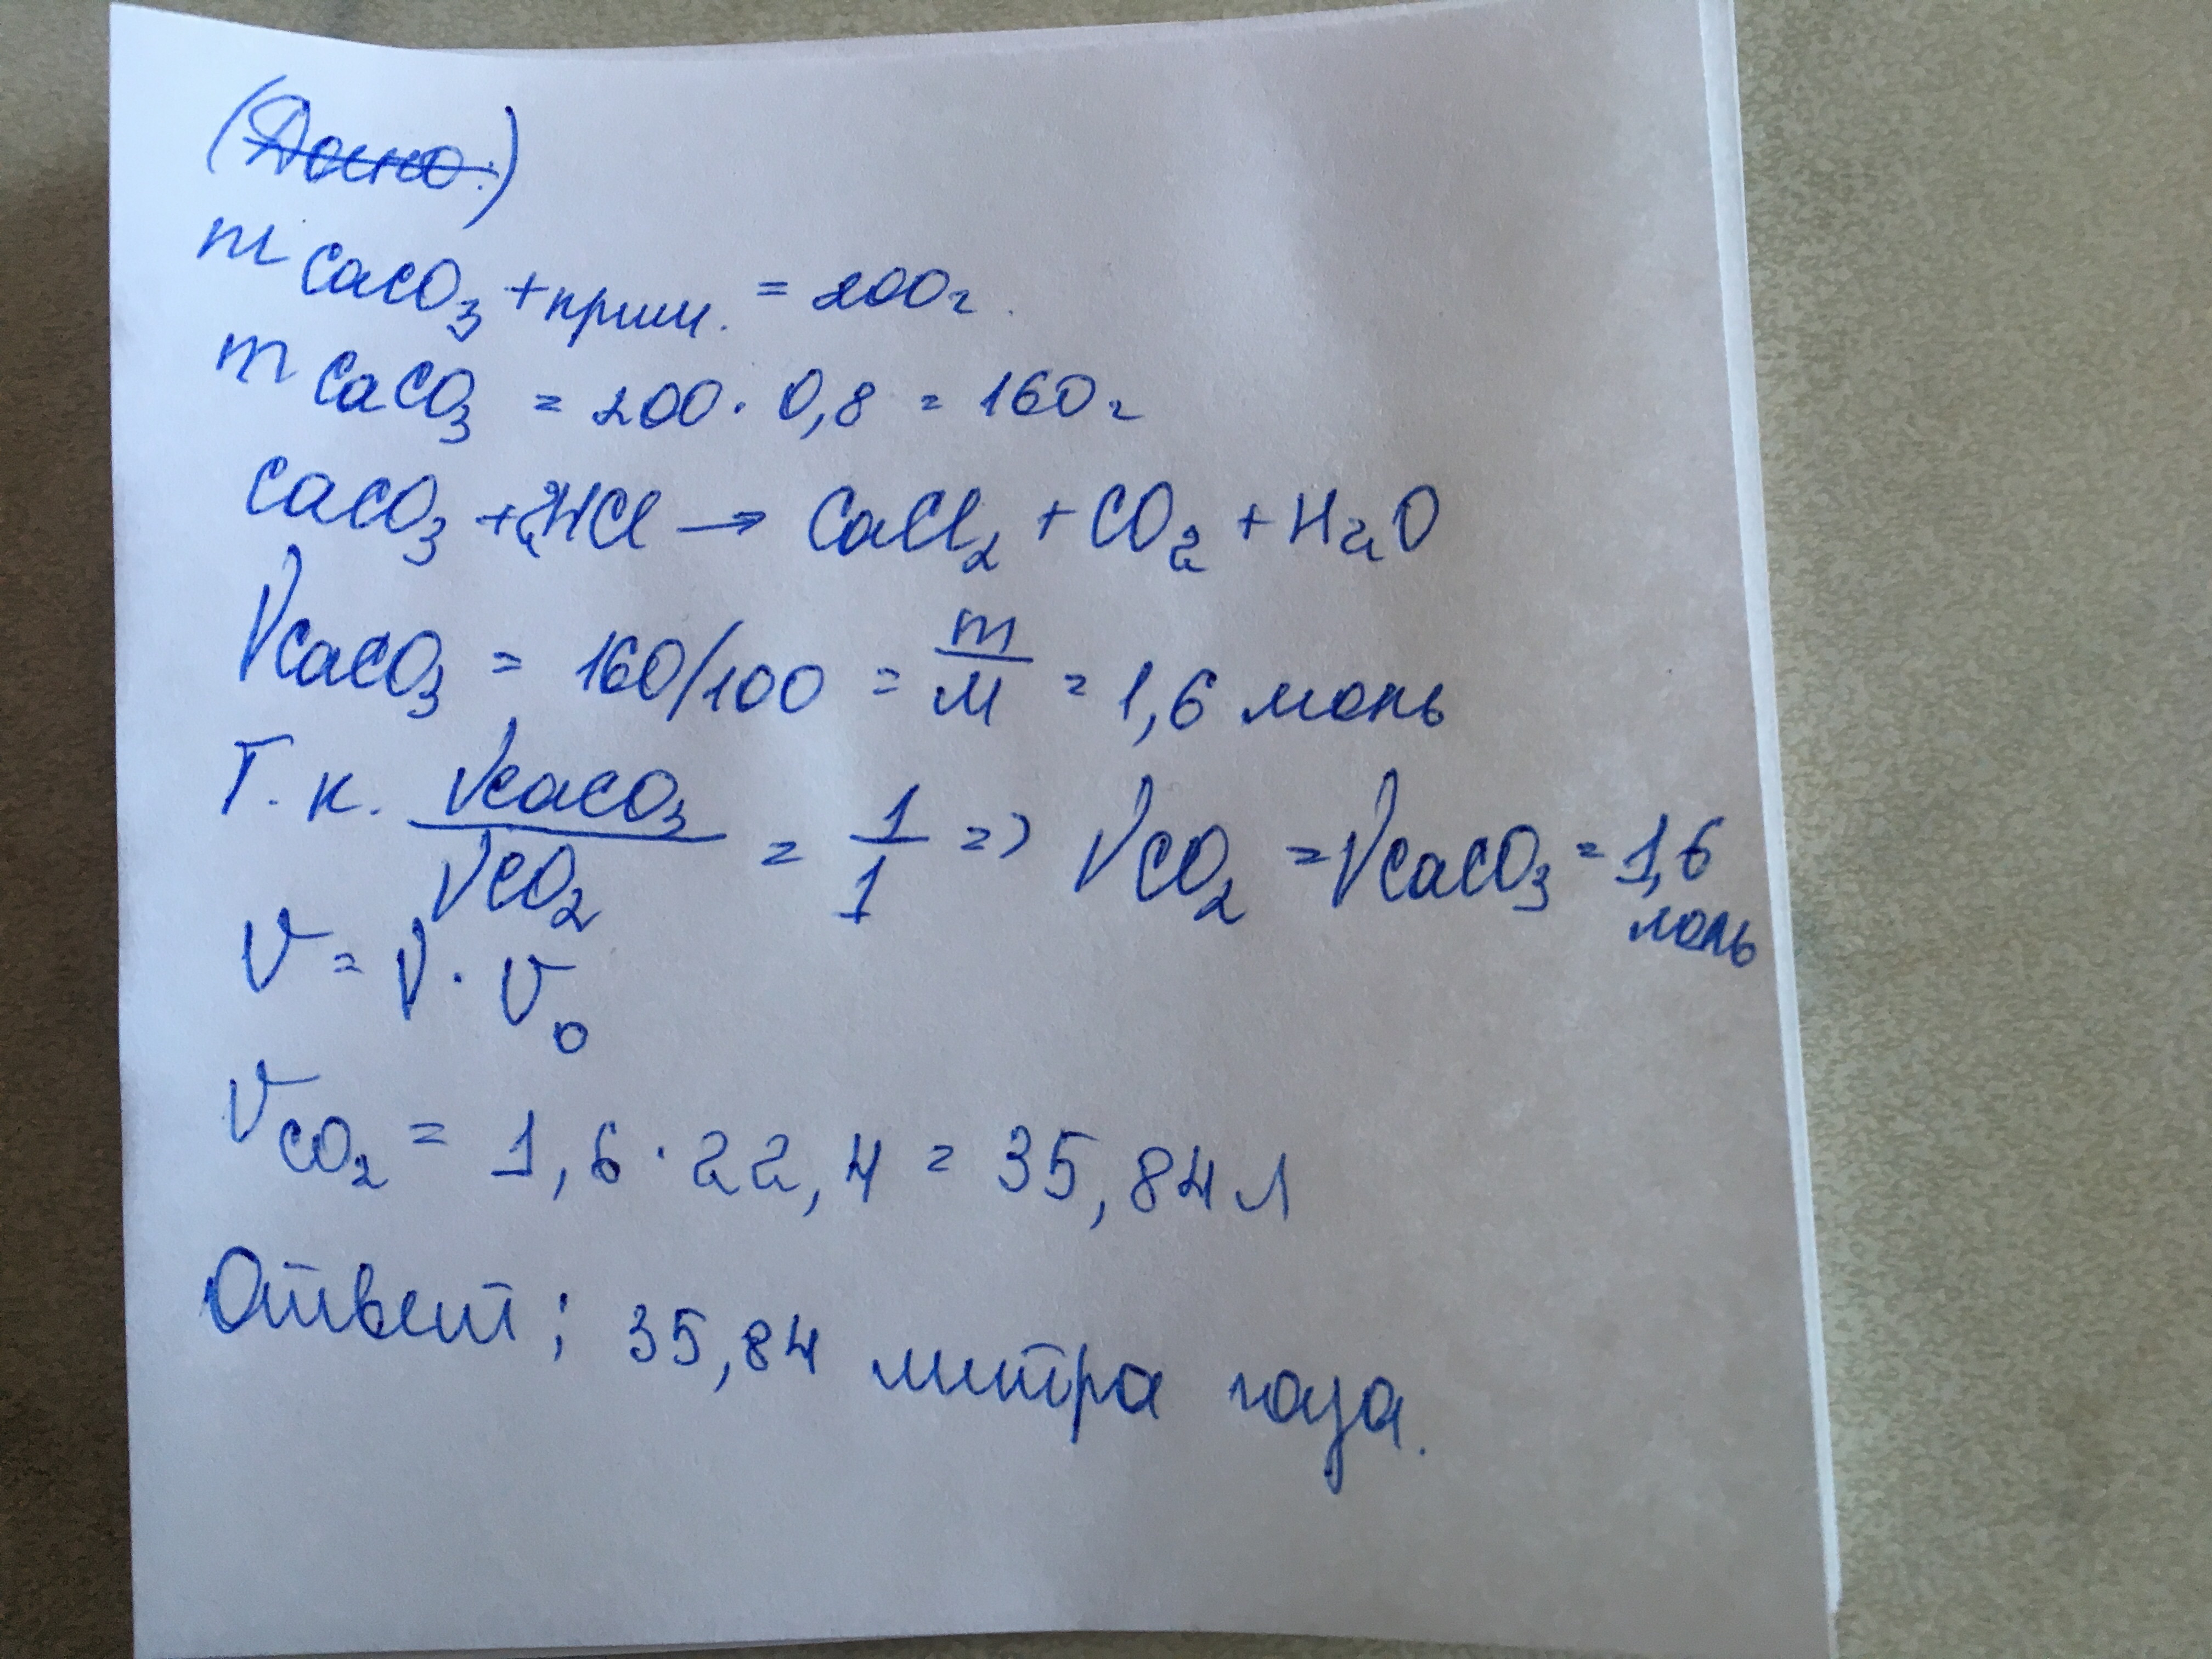 (Дано:)
m CaCO₃ + прим. = 200г.
m CaCO₃ = 200 · 0,8 = 160г
CaCO₃ + 2HCl → CaCl₂ + CO₂ + H₂O
νCaCO₃ = 160/100 = m/M = 1,6 моль
Т.к. νCaCO₃/νCO₂ = 1/1 => νCO₂ = νCaCO₃ = 1,6 моль
V = ν · V₀
V CO₂ = 1,6 · 22,4 = 35,84 л
Ответ: 35,84 литра газа.